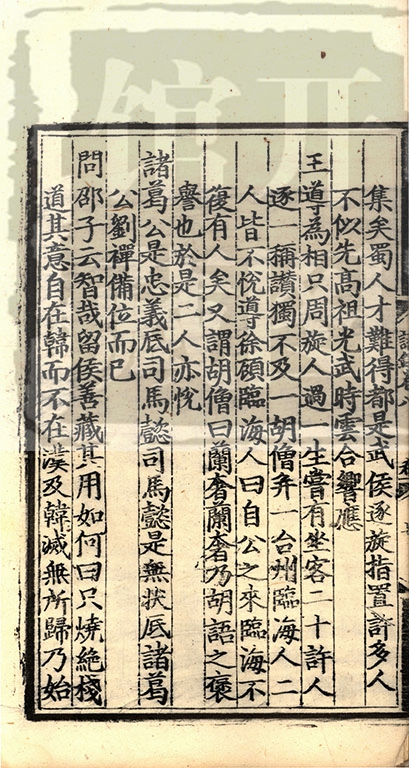 集矣蜀人才難得都是武侯逐旋指置許多人
不似先高祖光武時雲合響應
王導為相只周旋人過一生嘗有坐客二十許人
逐一稱讚獨不及一胡僧并一台州臨海人二
人皆不悅導徐顧臨海人曰自公之來臨海不
復有人矣又謂胡僧曰蘭奢蘭奢乃胡語之褒
譽也於是二人亦悅
諸葛公是忠義底司馬懿司馬懿是無狀底諸葛
公劉禪備位而已
問邵子云智哉留侯善藏其用如何曰只燒絶棧
道其意自在韓而不在漢及韓滅無所歸乃始